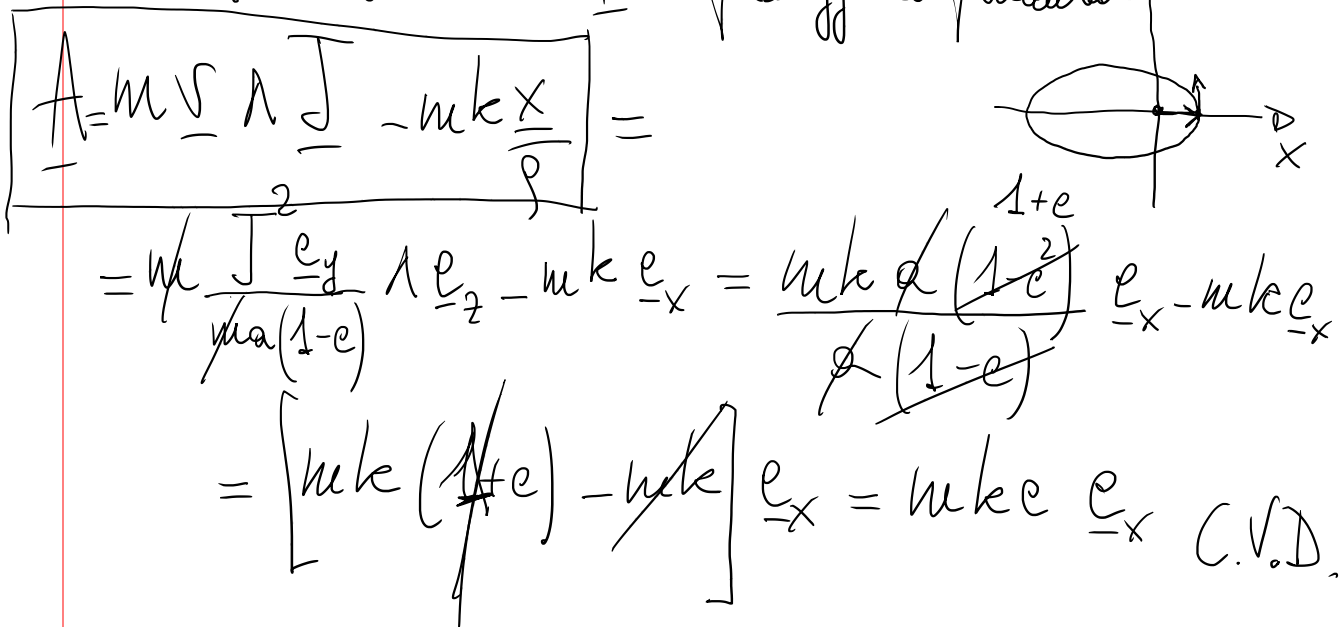 A = m v ∧ J - mk x/ρ =
x
= m J² e_y / ma(1-e) ∧ e_z - mk e_x = mk a (1-e²) / a (1-e) 1+e e_x - mk e_x
= [mk (1+e) - mk] e_x = mke e_x C.V.D.